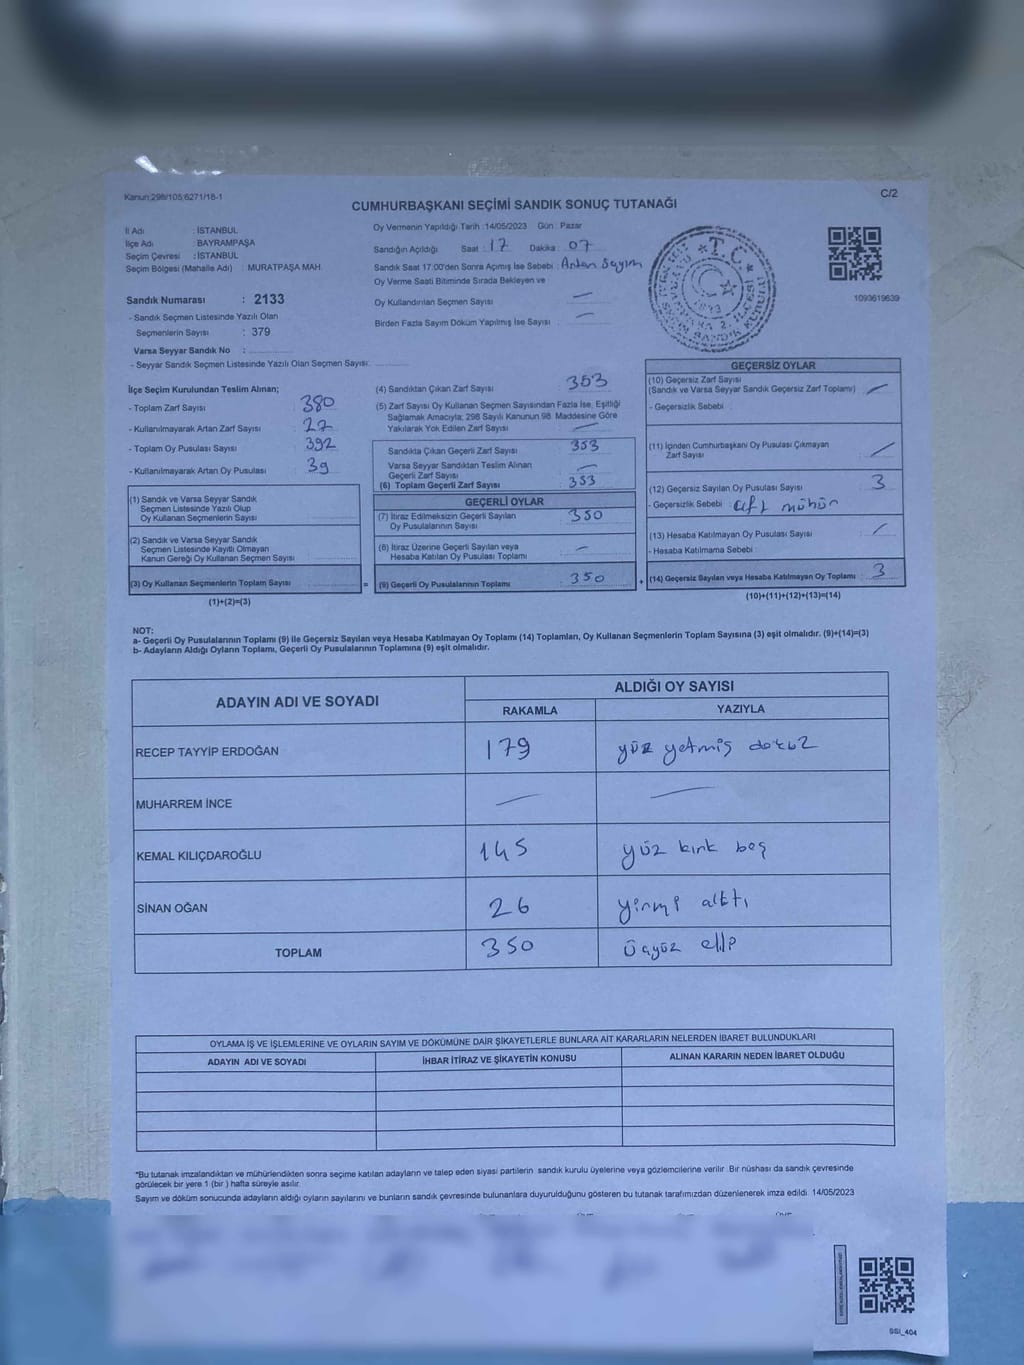 Kanun:298/105;6271/18-1
C/2
CUMHURBAŞKANI SEÇİMİ SANDIK SONUÇ TUTANAĞI
İl Adı : İSTANBUL
İlçe Adı : BAYRAMPAŞA
Seçim Çevresi : İSTANBUL
Seçim Bölgesi (Mahalle Adı) : MURATPAŞA MAH.
Sandık Numarası : 2133
- Sandık Seçmen Listesinde Yazılı Olan
Seçmenlerin Sayısı : 379
Varsa Seyyar Sandık No :
- Seyyar Sandık Seçmen Listesinde Yazılı Olan Seçmen Sayısı:
Oy Vermenin Yapıldığı Tarih :14/05/2023 Gün : Pazar
Sandığın Açıldığı Saat : 17 Dakika : 07
Sandık Saat 17:00'den Sonra Açımış İse Sebebi : Artan Sayım
Oy Verme Saati Bitiminde Sırada Bekleyen ve
Oy Kullandırılan Seçmen Sayısı —
Birden Fazla Sayım Döküm Yapılmış İse Sayısı —
T.C.
1093619639
İlçe Seçim Kurulundan Teslim Alınan;
- Toplam Zarf Sayısı 380
- Kullanılmayarak Artan Zarf Sayısı 27
- Toplam Oy Pusulası Sayısı 392
- Kullanılmayarak Artan Oy Pusulası 39
(1) Sandık ve Varsa Seyyar Sandık
Seçmen Listesinde Yazılı Olup
Oy Kullanan Seçmenlerin Sayısı
(2) Sandık ve Varsa Seyyar Sandık
Seçmen Listesinde Kayıtlı Olmayan
Kanun Gereği Oy Kullanan Seçmen Sayısı
(3) Oy Kullanan Seçmenlerin Toplam Sayısı
(1)+(2)=(3)
(4) Sandıktan Çıkan Zarf Sayısı 353
(5) Zarf Sayısı Oy Kullanan Seçmen Sayısından Fazla İse, Eşitliği
Sağlamak Amacıyla; 298 Sayılı Kanunun 98. Maddesine Göre
Yakılarak Yok Edilen Zarf Sayısı —
Sandıkta Çıkan Geçerli Zarf Sayısı 353
Varsa Seyyar Sandıktan Teslim Alınan
Geçerli Zarf Sayısı —
(6) Toplam Geçerli Zarf Sayısı 353
GEÇERLİ OYLAR
(7) İtiraz Edilmeksizin Geçerli Sayılan
Oy Pusulalarının Sayısı 350
(8) İtiraz Üzerine Geçerli Sayılan veya
Hesaba Katılan Oy Pusulası Toplamı —
= (9) Geçerli Oy Pusulalarının Toplamı 350 +
GEÇERSİZ OYLAR
(10) Geçersiz Zarf Sayısı
(Sandık ve Varsa Seyyar Sandık Geçersiz Zarf Toplamı) —
- Geçersizlik Sebebi :
(11) İçinden Cumhurbaşkanı Oy Pusulası Çıkmayan
Zarf Sayısı —
(12) Geçersiz Sayılan Oy Pusulası Sayısı 3
- Geçersizlik Sebebi : çift mühür
(13) Hesaba Katılmayan Oy Pusulası Sayısı —
- Hesaba Katılmama Sebebi :
(14) Geçersiz Sayılan veya Hesaba Katılmayan Oy Toplamı : 3
(10)+(11)+(12)+(13)=(14)
NOT:
a- Geçerli Oy Pusulalarının Toplamı (9) ile Geçersiz Sayılan veya Hesaba Katılmayan Oy Toplamı (14) Toplamları, Oy Kullanan Seçmenlerin Toplam Sayısına (3) eşit olmalıdır. (9)+(14)=(3)
b- Adayların Aldığı Oyların Toplamı, Geçerli Oy Pusulalarının Toplamına (9) eşit olmalıdır.
ADAYIN ADI VE SOYADI ALDIĞI OY SAYISI
RAKAMLA YAZIYLA
RECEP TAYYİP ERDOĞAN 179 yüz yetmiş dokuz
MUHARREM İNCE — —
KEMAL KILIÇDAROĞLU 145 yüz kırk beş
SİNAN OĞAN 26 yirmi altı
TOPLAM 350 üçyüz elli
OYLAMA İŞ VE İŞLEMLERİNE VE OYLARIN SAYIM VE DÖKÜMÜNE DAİR ŞİKAYETLERLE BUNLARA AİT KARARLARIN NELERDEN İBARET BULUNDUKLARI
ADAYIN ADI VE SOYADI İHBAR İTİRAZ VE ŞİKAYETİN KONUSU ALINAN KARARIN NEDEN İBARET OLDUĞU
*Bu tutanak imzalandıktan ve mühürlendikten sonra seçime katılan adayların ve talep eden siyasi partilerin sandık kurulu üyelerine veya gözlemcilerine verilir. Bir nüshası da sandık çevresinde
görülecek bir yere 1 (bir) hafta süreyle asılır.
Sayım ve döküm sonucunda adayların aldığı oyların sayılarını ve bunların sandık çevresinde bulunanlara duyurulduğunu gösteren bu tutanak tarafımızdan düzenlenerek imza edildi. 14/05/2023
SSI_404